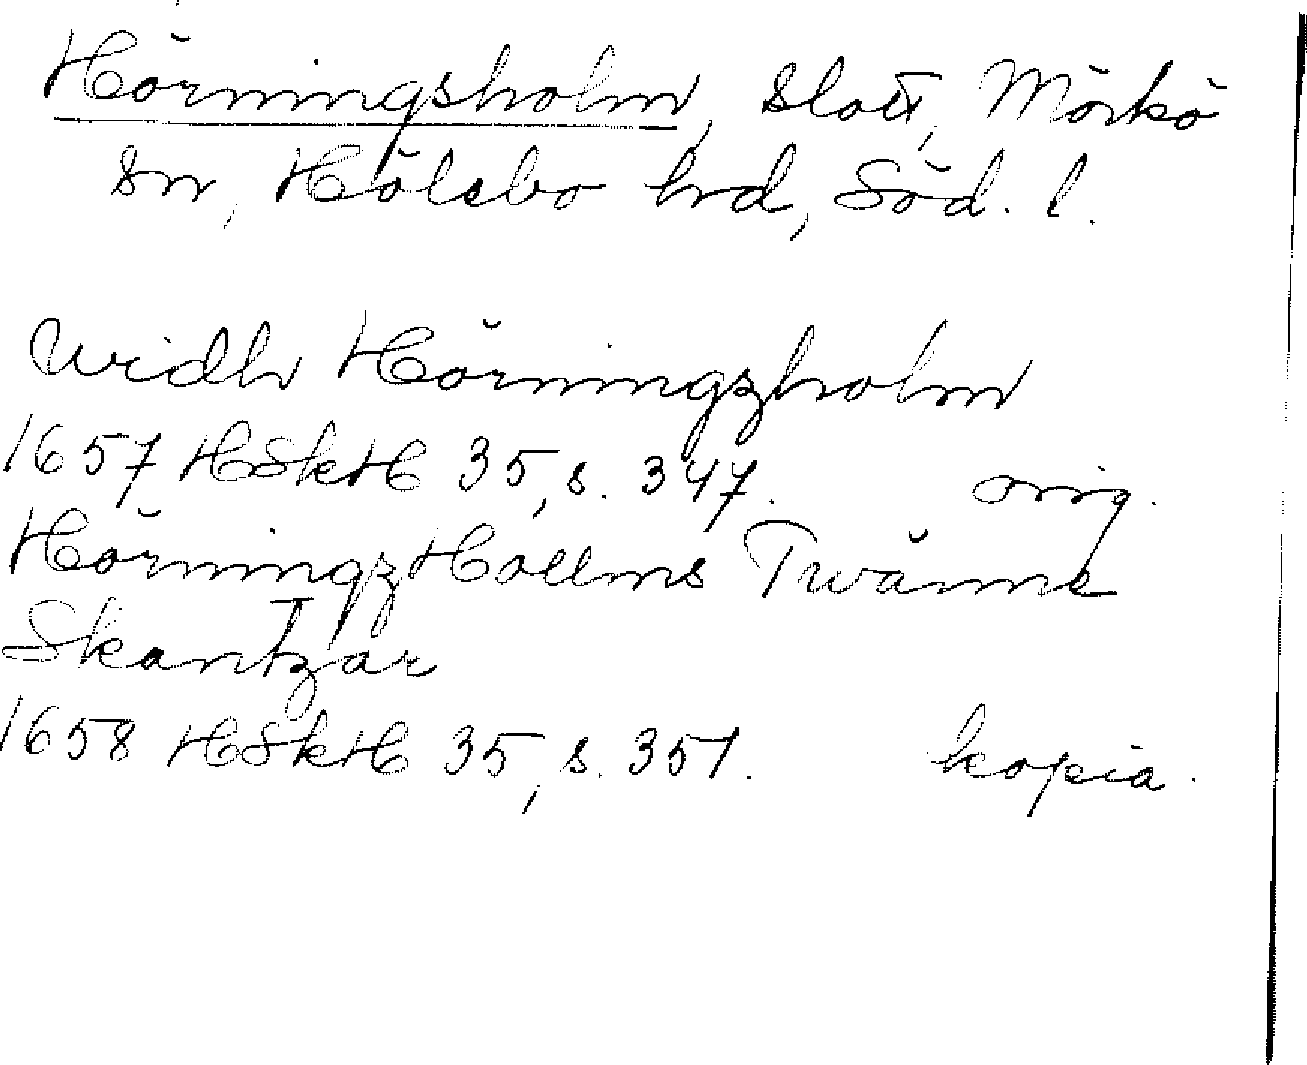 Hörningsholm, slott, Mörkö
sn, Hölebo hrd, Söd. l.
widh Hörningzholm
1657 HSkH 35, s. 347. orig.
Hörningz Hollms Twänne
Skantzar
1658 HSkH 35, s. 351. kopia.